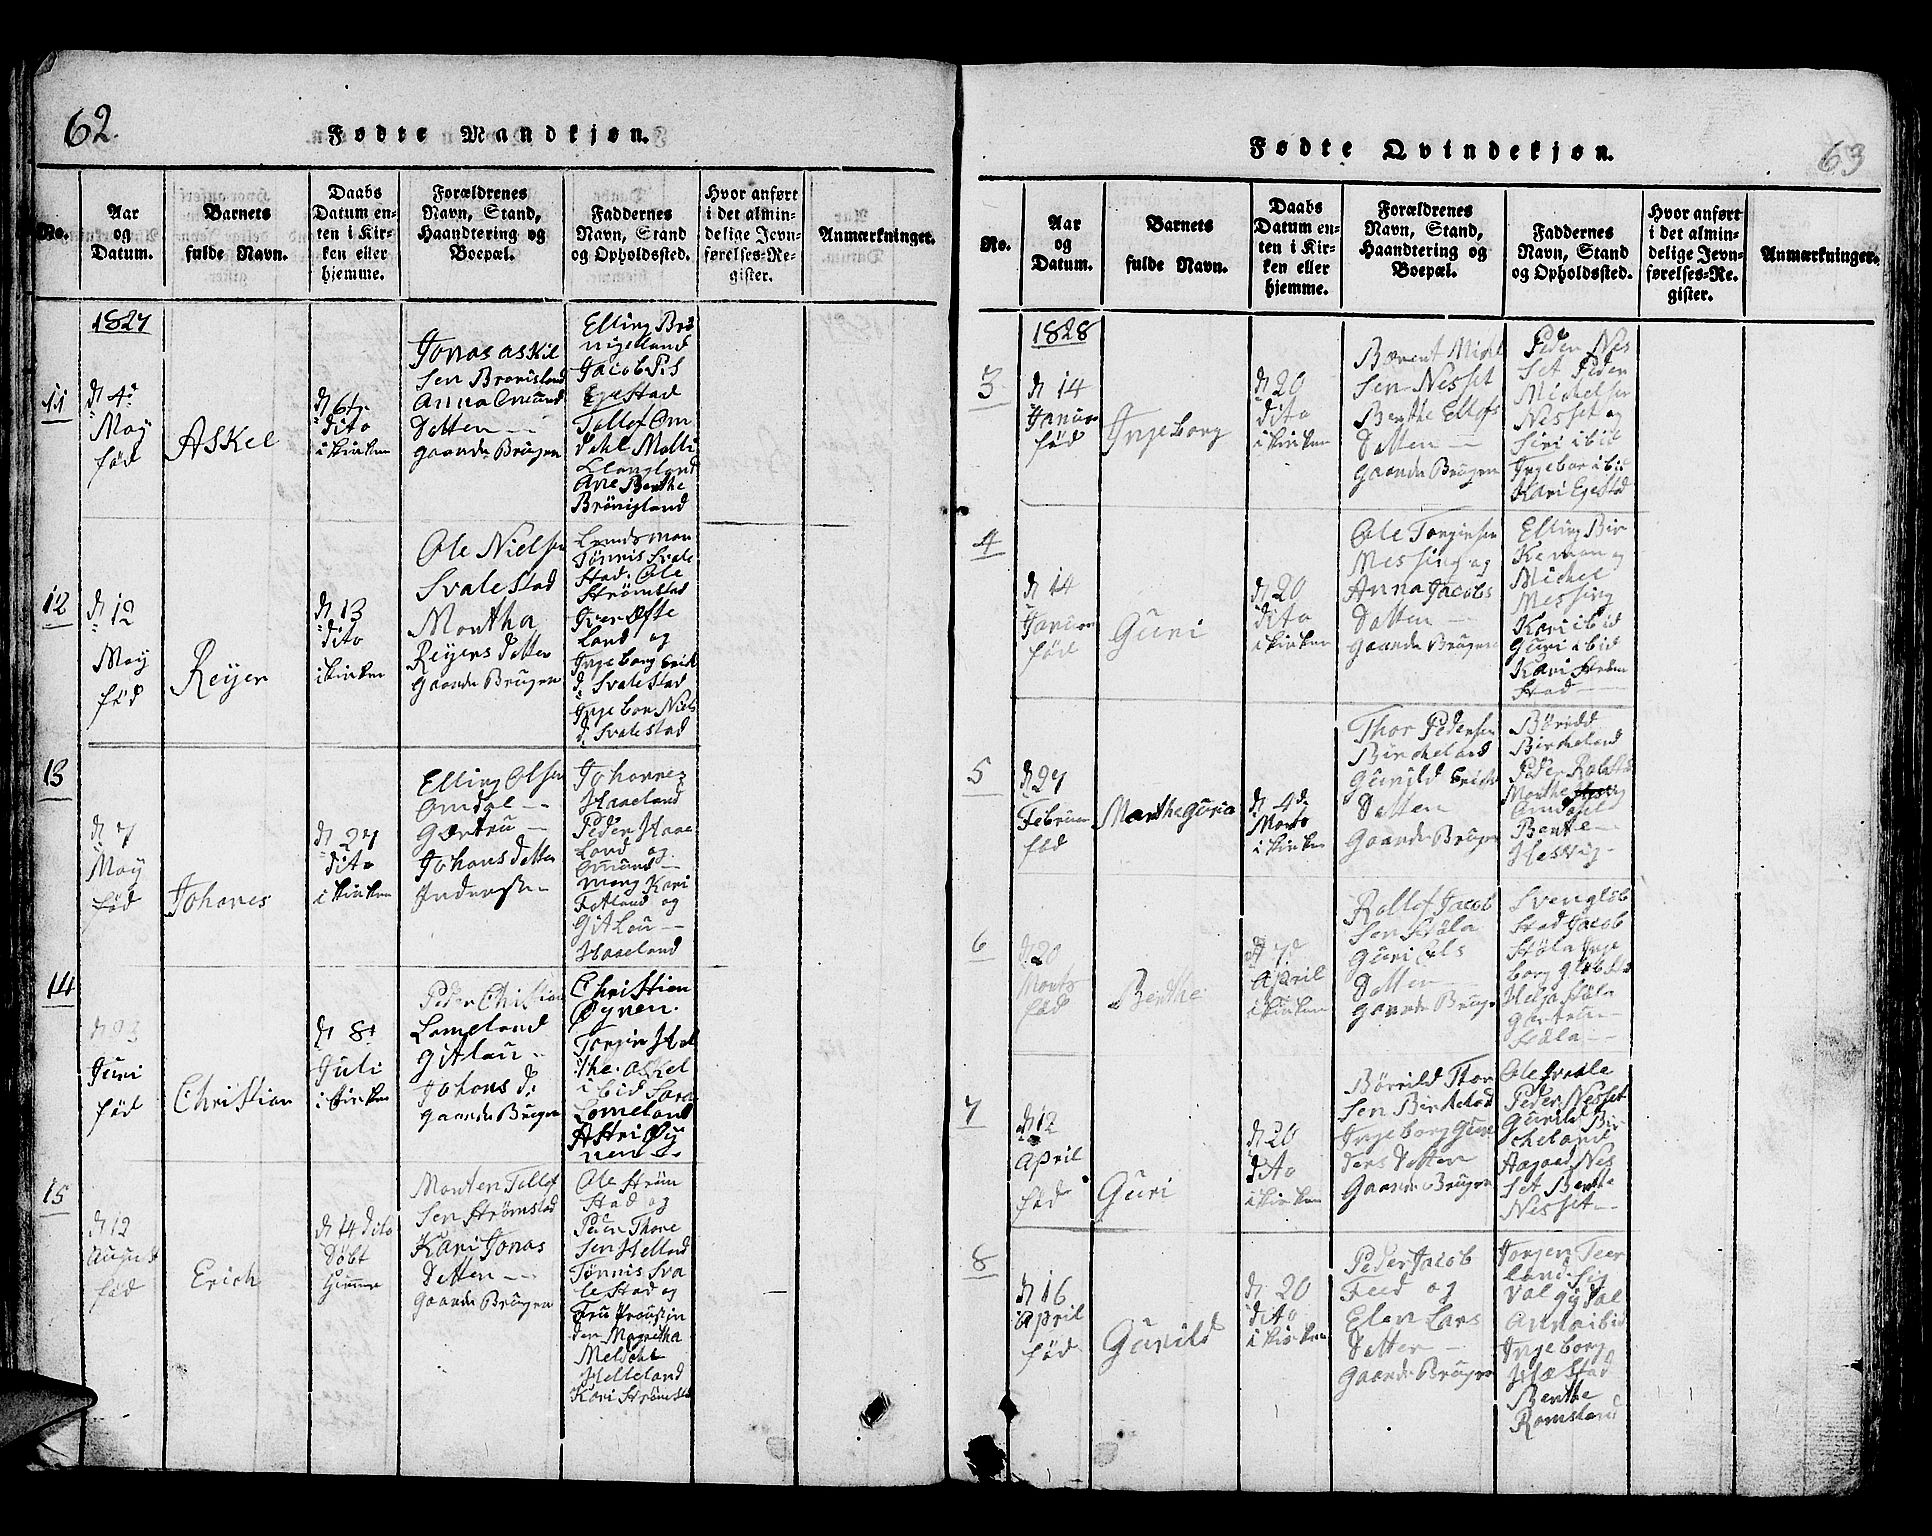 62.
Fødte Mandkjøn.
No.
Aar
og
Datum.
Barnets
fulde Navn.
Daabs
Datum en-
ten i Kir-
ken eller
hjemme.
Forældrenes
Navn, Stand,
Haandtering og
Boepæl.
Faddernes
Navn, Stand
og Opholdssted.
Hvor anført
i det almin-
delige Jevn-
førelses-Re-
gister.
Anmærkninger.
1827
11
d 4de
May
fød
Askel
d 6te
dito
i Kirken
Jonas Askil
sen Bronisland
Anna Omund
Datter
Gaardbrugen
Elling Brö
nigeland
Jacob
Egestad
Tollof Om
dahl
Llangland
Ane Berthe
Brönigland
12
d 12
May
fød
Reyer
d 13
dito
i Kirken
Ole Nielsen
Svalestad
Martha
Reyers Datter
Gaarde Brugen
Lensman
Tønnis Svale
stad. Ole
Strømstad
Iver Øfte
land og
Ingeborg Erick
d. Svalestad
Ingebor Niels
d. Svalestad
13
d 7
May
fød
Johanes
d 27
dito
i Kirken
Elling Olsen
Omdal
Gertru
Johans Datter
Johannes
Haaeland
Peder Haae
land og
Omund
Kari
Fotland og
Gitlou
Haaeland
14
Juni
fød
Christian
d 8de
Juli
i Kirken
Peder Christian
Lomeland
Gitlau
Johans d:
Gaarde Brugen
Christian
Øynen.
Torgin Hel
the. Askel
ibid Sara
Lomeland
Astri Øy
nene
15
d 12
August
fød
Erich
d 14 dito
Døbt
Hiemme
Morten Tollof
sen Strømstad
Kari Jonas
Datter
Gaarde Brugen
Ole Strøm
stad og
Peder Thore
sen Helland
Tønnis Sva
lestad og
Fru Proustin
den Magretha
Meldahl
Helleland
Kari Strømstad
63
Fødte Qvindekjøn.
No.
Aar
og
Datum.
Barnets
fulde Navn.
Daabs
Datum en-
ten i Kir-
ken eller
hjemme.
Forældrenes
Navn, Stand,
Haandtering og
Boepæl.
Faddernes
Navn, Stand
og Opholdssted.
Hvor anført
i det almin-
delige Jevn-
førelses-Re-
gister.
Anmærkninger.
1828
3
d 14
Januar
fød
Ingeborg
d 20
dito
i Kirken
Berent Michel
sen Nesset
Berthe Ellofs
Datter
Gaarde Brugen
Peder Nes
set Peder
Michelsen
Nesset og
Siri ibid
Ingebor ibid
Kari Egestad
4
d 14
Januar
fød
Guri
d 20
dito
i Kirken
Ole Torginsen
Messing og
Anna Jacobs
Datter
Gaarde Brugen
Elling Bir
keman og
Michel
Messing
Kari ibid
Guri ibid
Kari Strøm
stad
5
d 27
Februar
fød
Marthe Guria
d 4de
Marts
i Kirken
Thor Pedersen
Bircheland
Gunild Erichs
Datter
Gaarde Brugen
Børild
Bircheland
Peder Rolestad
Marthe
Omdahl
Berte
Hesvig
6
d 20
Marts
fød
Berthe
d 7de
April
i Kirken
Rollof Jacob
sen Støla
Guri Ols
Datter
Gaarde Brugen
Sven Gløb
stad Jacob
Støla Inge
borg Gløbsta
Helga Støla
Gertru
Støla
7
d 12
April
fød
Guri
d 20
dito
i Kirken
Børild Thor
sen Birkeland
Ingeborg Gun
ders Datter
Gaarde Brugen
Ole Svale
Peder Nesset
Gunild Bir
cheland
Aagaad Nes
set Berthe
Nesset
8
d 16
April
fød
Gunild
d 20
dito
i Kirken
Peder Jacob
Feed og
Elen Lars
Datter
Gaarde Brugen
Jorgen Teer
land Sig
val Gydal
Anna ibid
Ingeborg
Mæstad
Berthe
Romsland